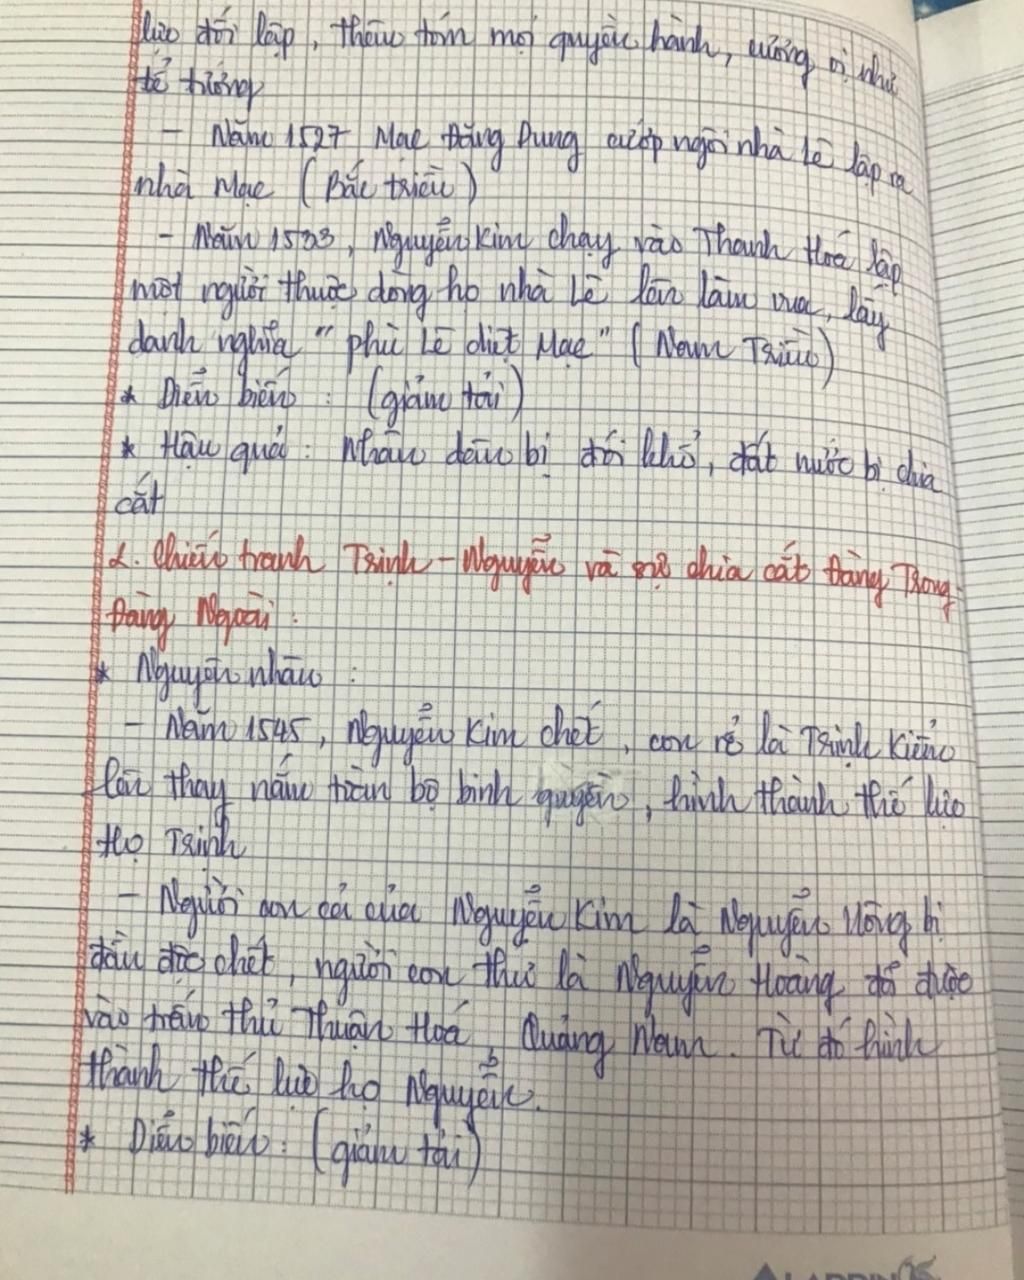 lực đối lập, thâu tóm mọi quyền hành, cương vị như
tể tướng
- Năm 1527 Mạc Đăng Dung cướp ngôi nhà Lê lập ra
nhà Mạc (Bắc triều)
- Năm 1533, Nguyễn Kim chạy vào Thanh Hoá lập
một người thuộc dòng họ nhà Lê lên làm vua, lấy
danh nghĩa "phù Lê diệt Mạc" (Nam Triều)
* Diễn biến : (giảm tải)
* Hậu quả : Nhân dân bị đói khổ, đất nước bị chia
cắt
2. Chiến tranh Trịnh - Nguyễn và sự chia cắt Đàng Trong-
Đàng Ngoài :
* Nguyên nhân :
- Năm 1545, Nguyễn Kim chết, con rể là Trịnh Kiểm
lên thay nắm toàn bộ binh quyền, hình thành thế lực
Họ Trịnh
- Người con cả của Nguyễn Kim là Nguyễn Uông bị
đầu độc chết, người con thứ là Nguyễn Hoàng đã được
vào trấn thủ Thuận Hoá, Quảng Nam. Từ đó hình
thành thế lực họ Nguyễn.
* Diễn biến : (giảm tải)